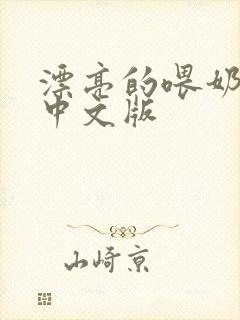 漂亮的喂奶
中文版
山崎京